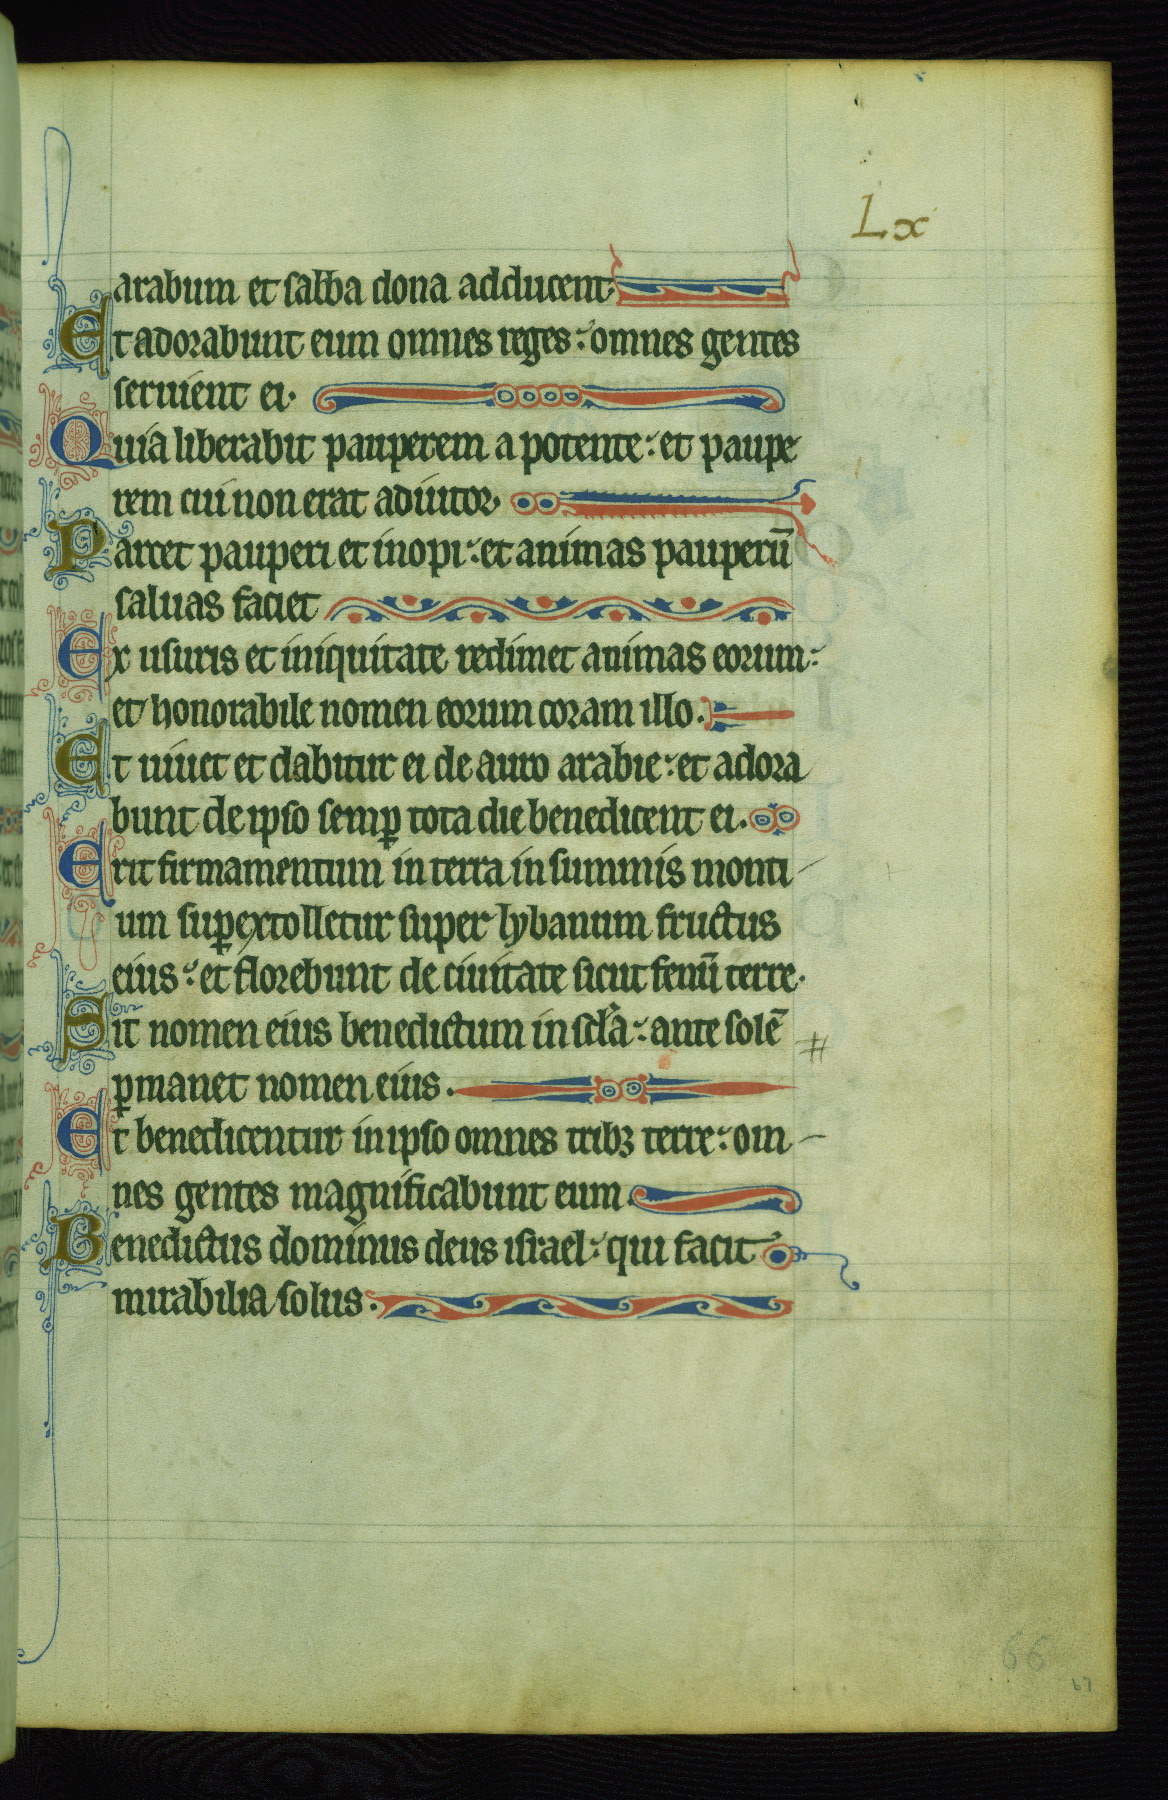 Lx
arabum et sabba dona adducent.
Et adorabunt eum omnes reges: omnes gentes
seruient ei.
Quia liberabit pauperem a potente: et paupe
rem cui non erat adiutor.
Parcet pauperi et inopi: et animas pauperū
saluas faciet
Ex usuris et iniquitate redimet animas eorum:
et honorabile nomen eorum coram illo.
Et uiuet et dabitur ei de auro arabie: et adora
bunt de ipso semꝑ tota die benedicent ei.
Erit firmamentum in terra in summis monti
um suꝑextolletur super lybanum fructus
eius: et florebunt de ciuitate sicut fenū terre.
Sit nomen eius benedictum in scła: ante solē
ꝑmanet nomen eius.
Et benedicentur in ipso omnes tribꝫ terre: om
nes gentes magnificabunt eum.
Benedictus dominus deus israel: qui facit
mirabilia solus.
66
67